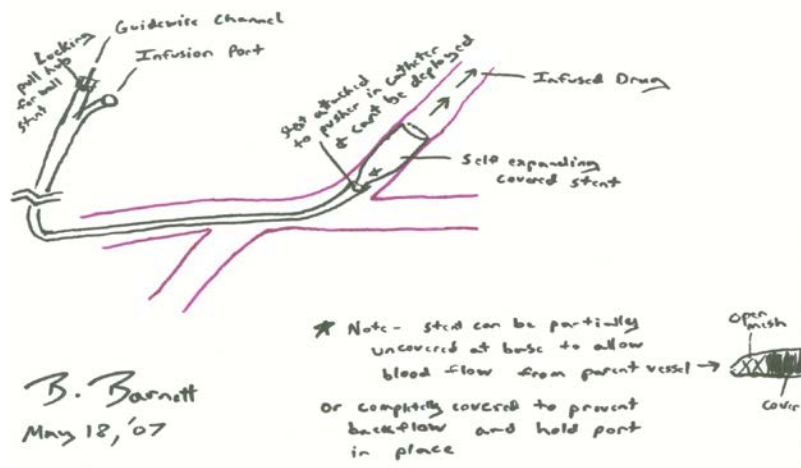 Guidewire Channel
Infusion Port
Locking
pull hub
for ball
stent
stent attached
to pusher in catheter
& cant be deployed
Infused Drug
Self expanding
covered stent
* Note - stent can be partially
uncovered at base to allow
blood flow from parent vessel →
or completely covered to prevent
backflow and hold port
in place
Open
mesh
Cover
B. Barnett
May 18, '07